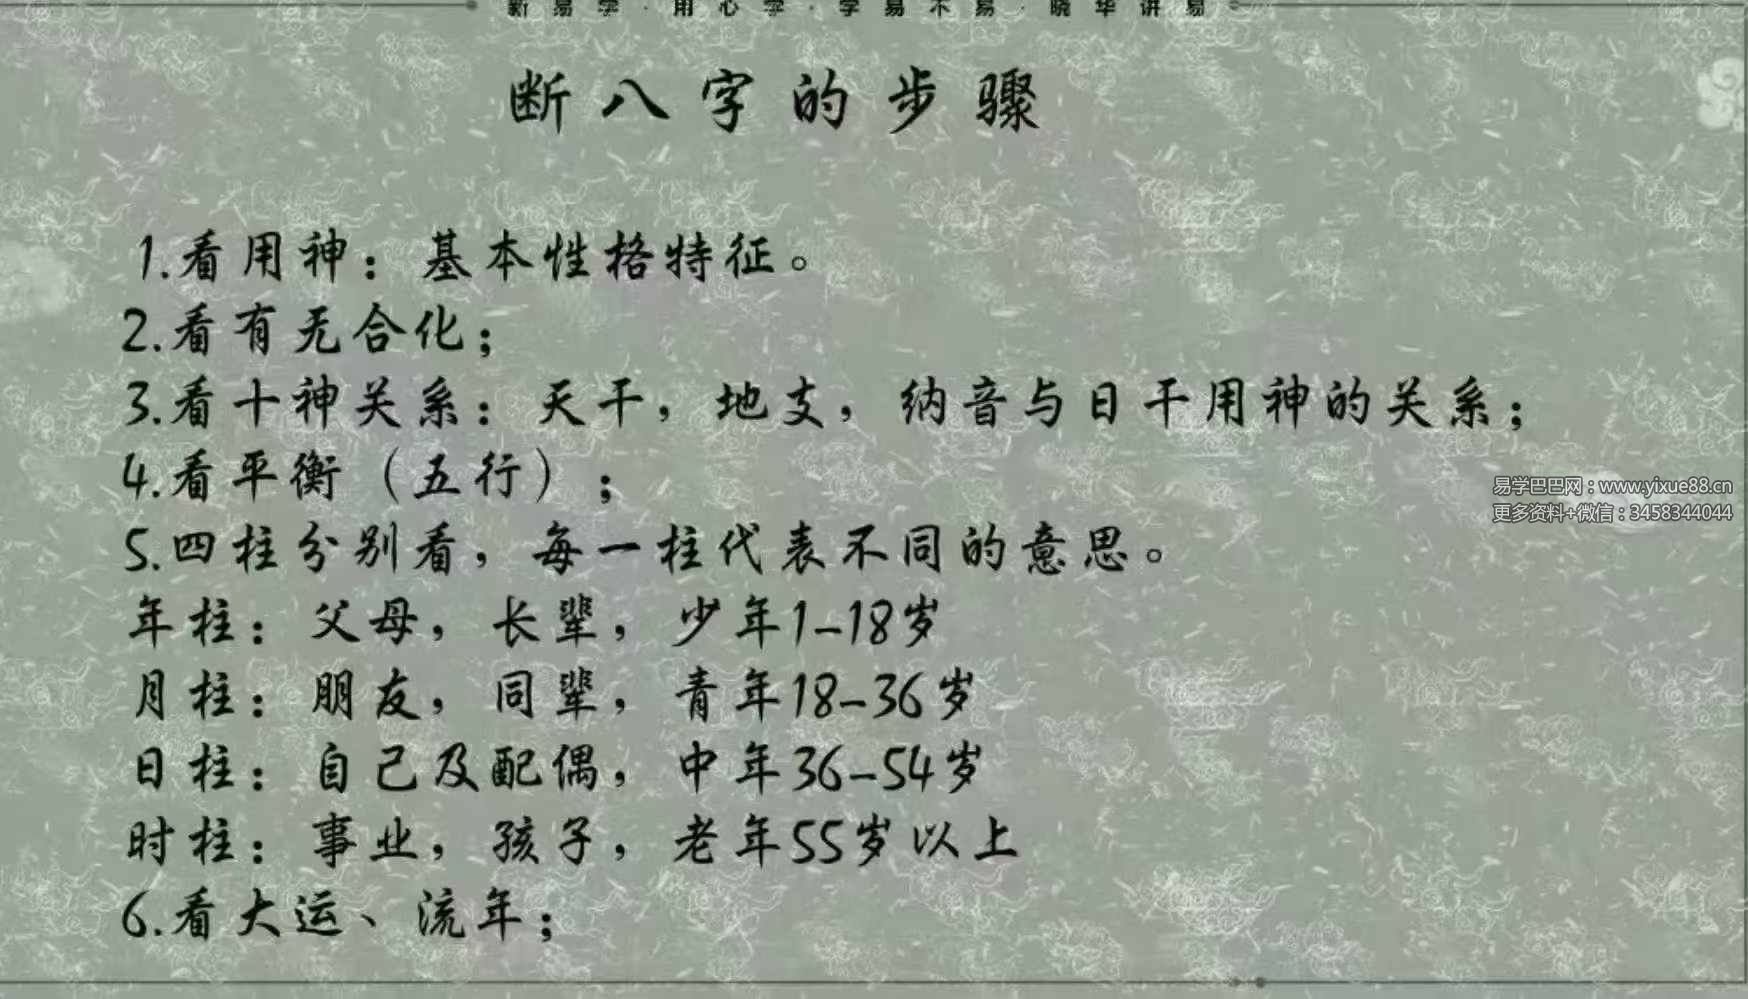 新易学·用心学·学易不易·晓华讲易
断八字的步骤
1.看用神：基本性格特征。
2.看有无合化；
3.看十神关系：天干，地支，纳音与日干用神的关系；
4.看平衡（五行）；
易学巴巴网：www.yixue88.cn
更多资料+微信：3458344044
5.四柱分别看，每一柱代表不同的意思。
年柱：父母，长辈，少年1-18岁
月柱：朋友，同辈，青年18-36岁
日柱：自己及配偶，中年36-54岁
时柱：事业，孩子，老年55岁以上
6.看大运、流年；